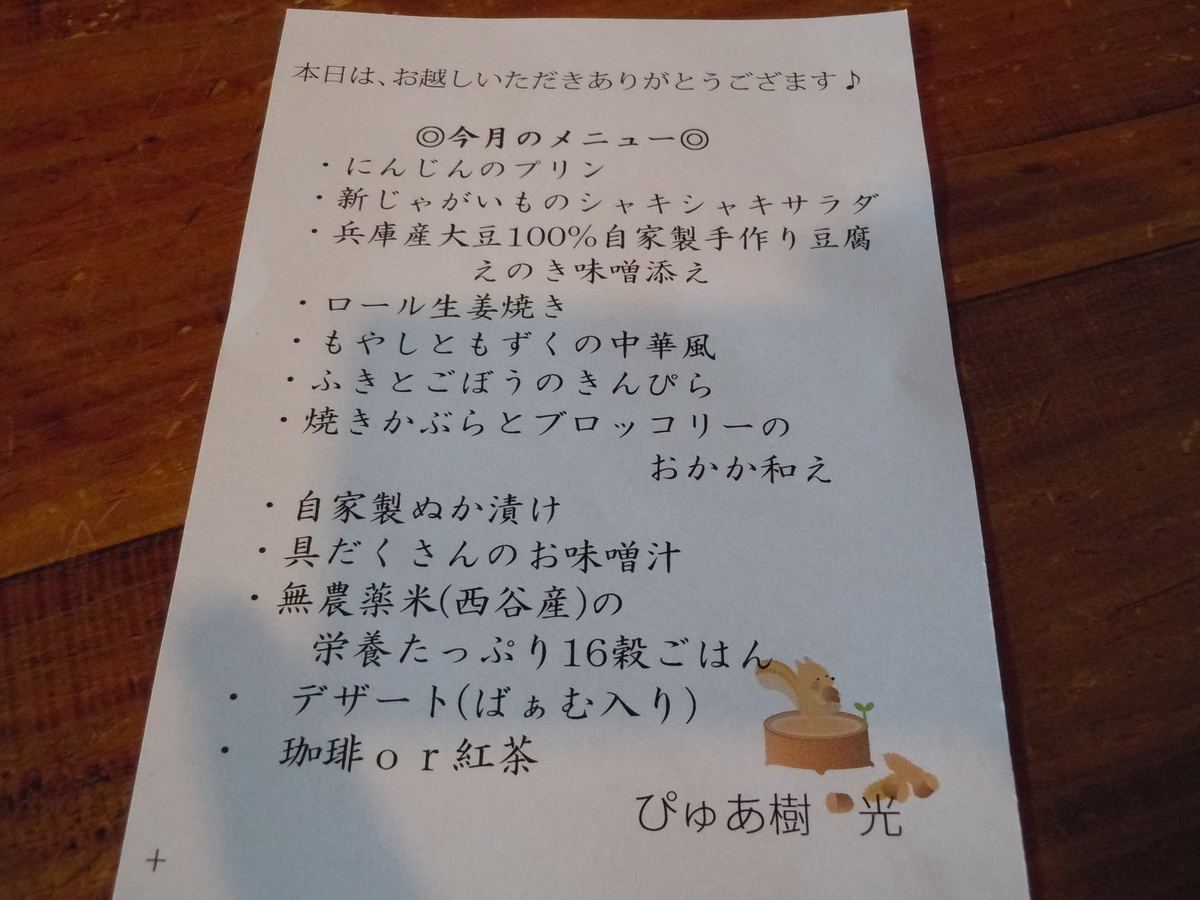 本日は、お越しいただきありがとうござます♪
◎今月のメニュー◎
・にんじんのプリン
・新じゃがいものシャキシャキサラダ
・兵庫産大豆100%自家製手作り豆腐
えのき味噌添え
・ロール生姜焼き
・もやしともずくの中華風
・ふきとごぼうのきんぴら
・焼きかぶらとブロッコリーの
おかか和え
・自家製ぬか漬け
・具だくさんのお味噌汁
・無農薬米(西谷産)の
栄養たっぷり16穀ごはん
・ デザート(ばぁむ入り)
・ 珈琲ｏｒ紅茶
ぴゅあ樹 光
+